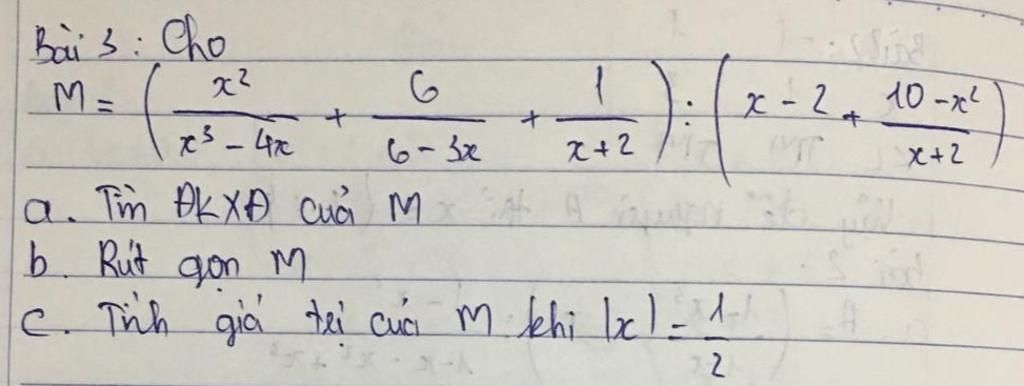 Bài 3 : Cho
M = ( x²/(x³ - 4x) + 6/(6 - 3x) + 1/(x+2) ) : ( x - 2 + (10 - x²)/(x+2) )
a. Tìm ĐKXĐ của M
b. Rút gọn M
c. Tính giá trị của M khi |x| = 1/2